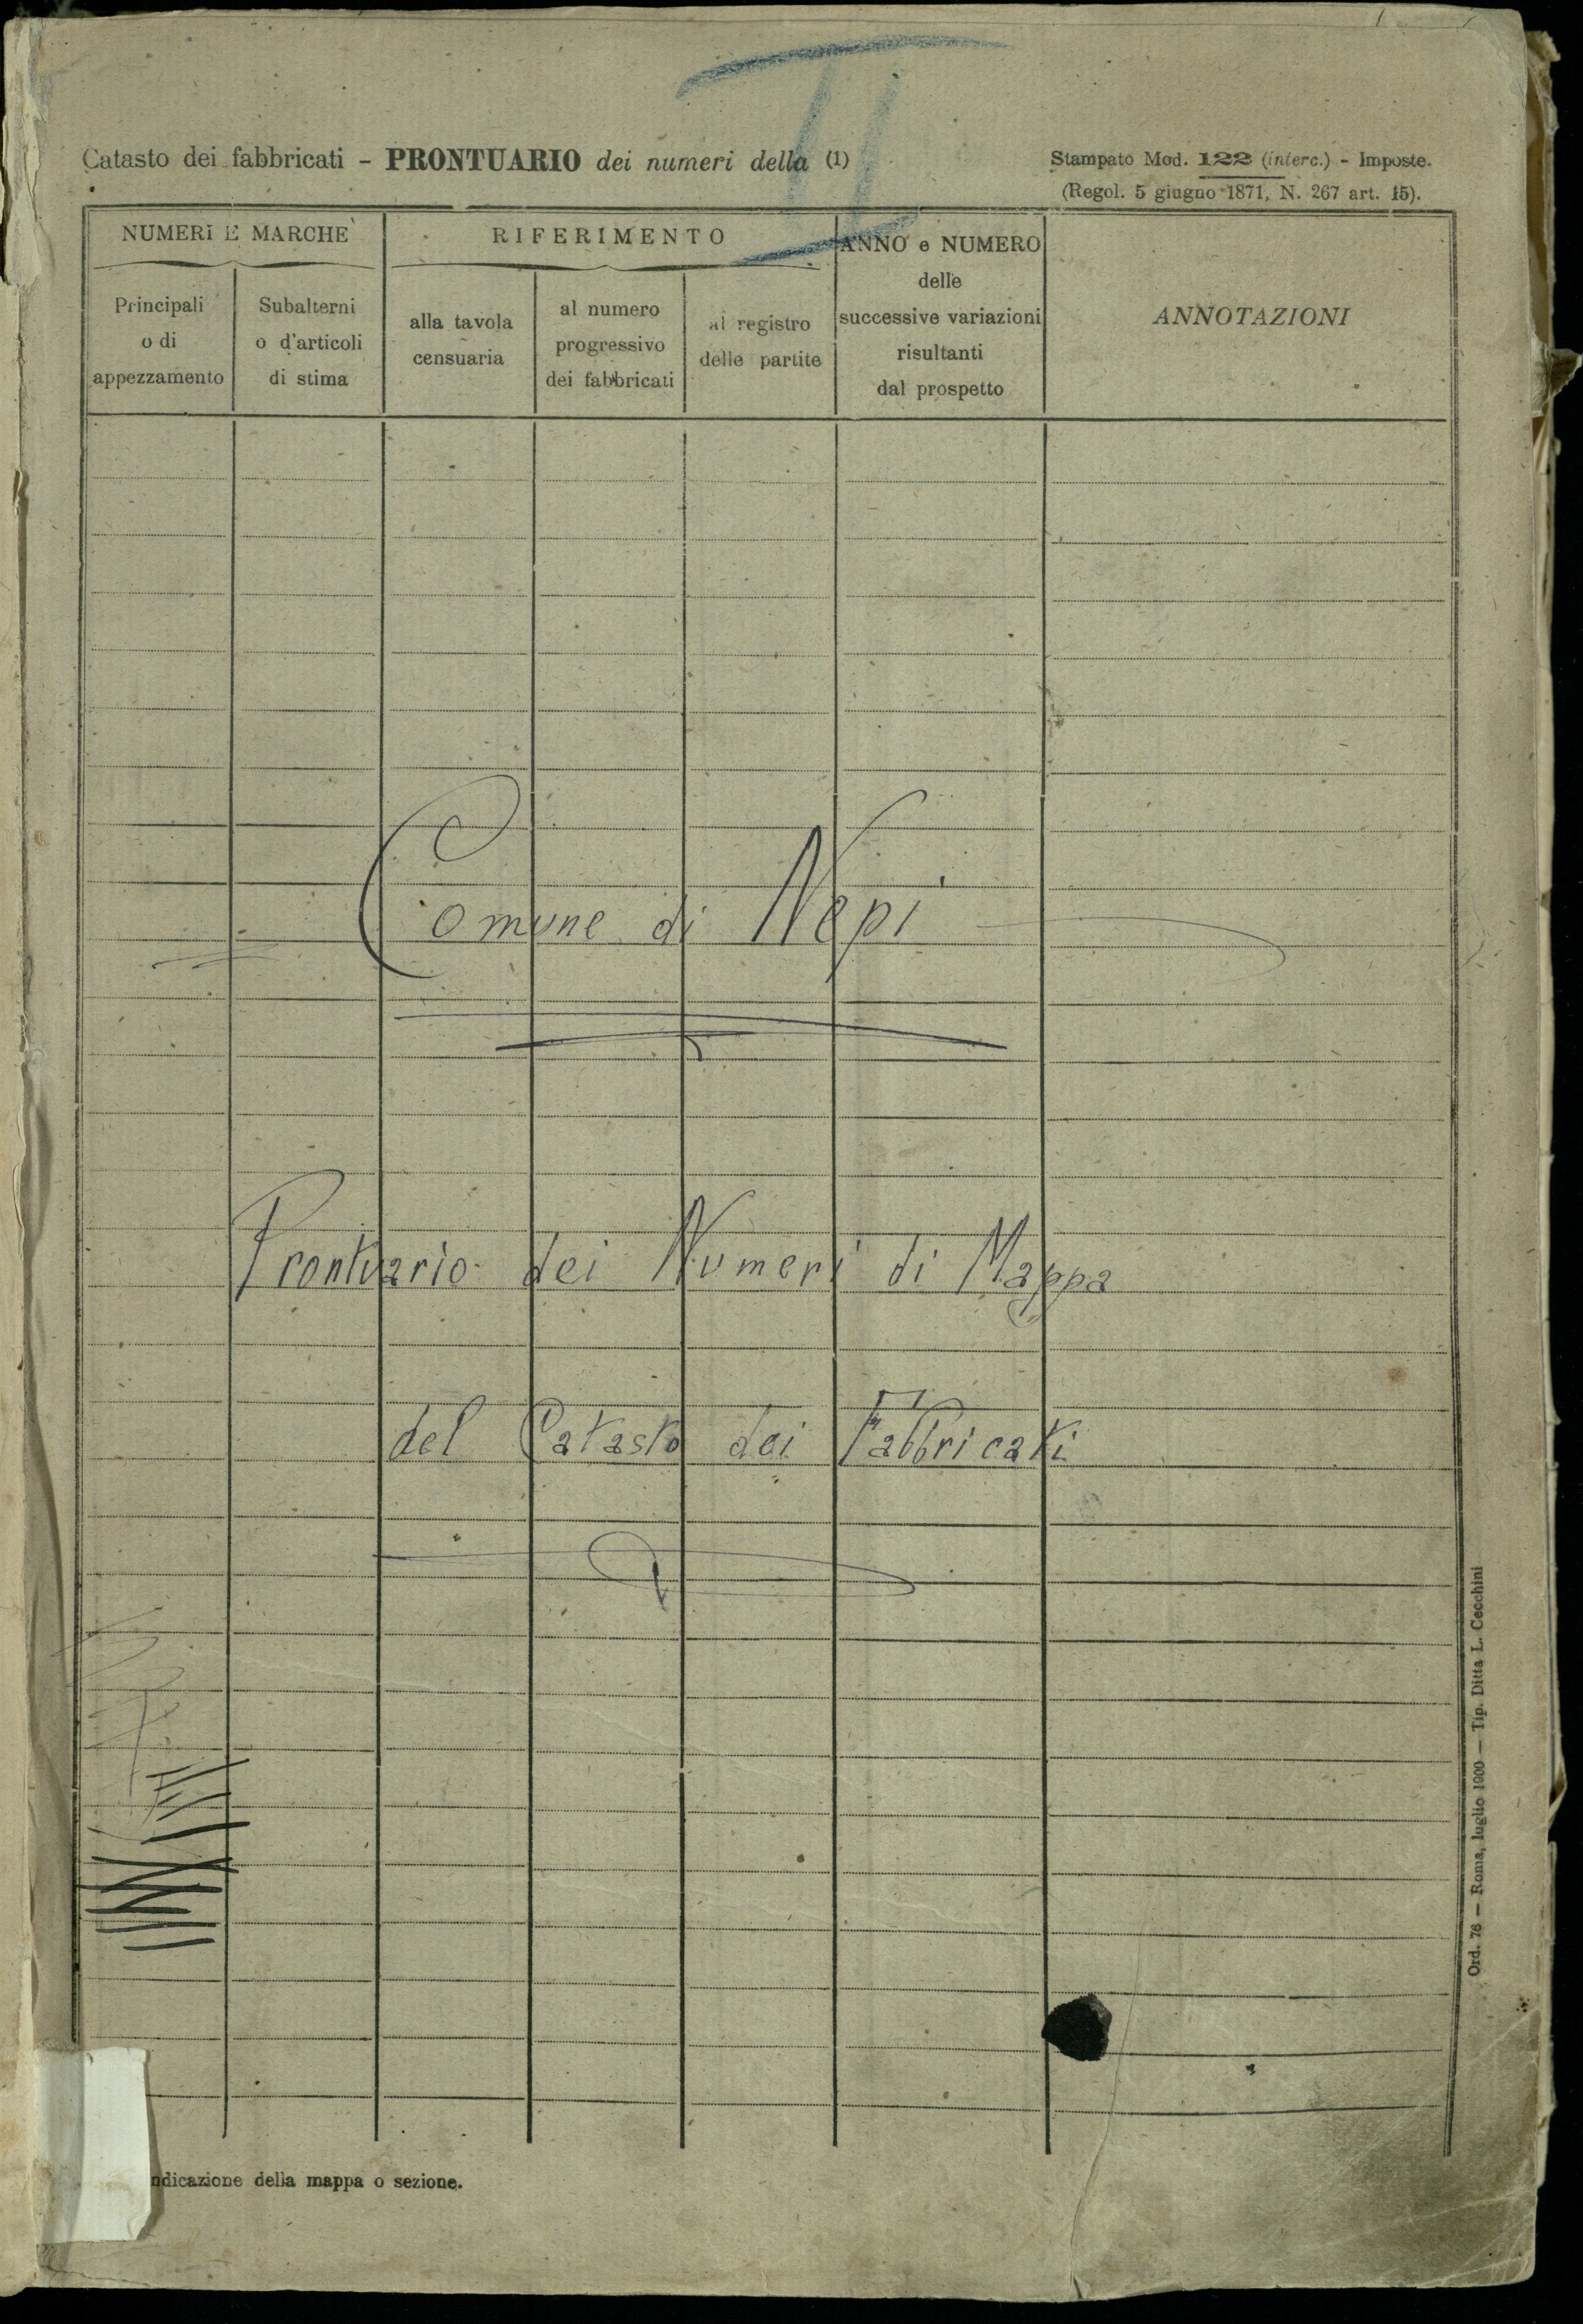 II
Catasto dei fabbricati - PRONTUARIO dei numeri della (1)
Stampato Mod. 122 (interc.) - Imposte.
(Regol. 5 giugno 1871, N. 267 art. 15).
NUMERI E MARCHE
RIFERIMENTO
ANNO e NUMERO
delle
successive variazioni
risultanti
dal prospetto
ANNOTAZIONI
Principali
o di
appezzamento
Subalterni
o d'articoli
di stima
alla tavola
censuaria
al numero
progressivo
dei fabbricati
al registro
delle partite
Comune di Nepi
Prontuario dei Numeri di Mappa
del Catasto dei Fabbricati
ndicazione della mappa o sezione.
Ord. 76 — Roma, luglio 1900 — Tip. Ditta L. Cecchini